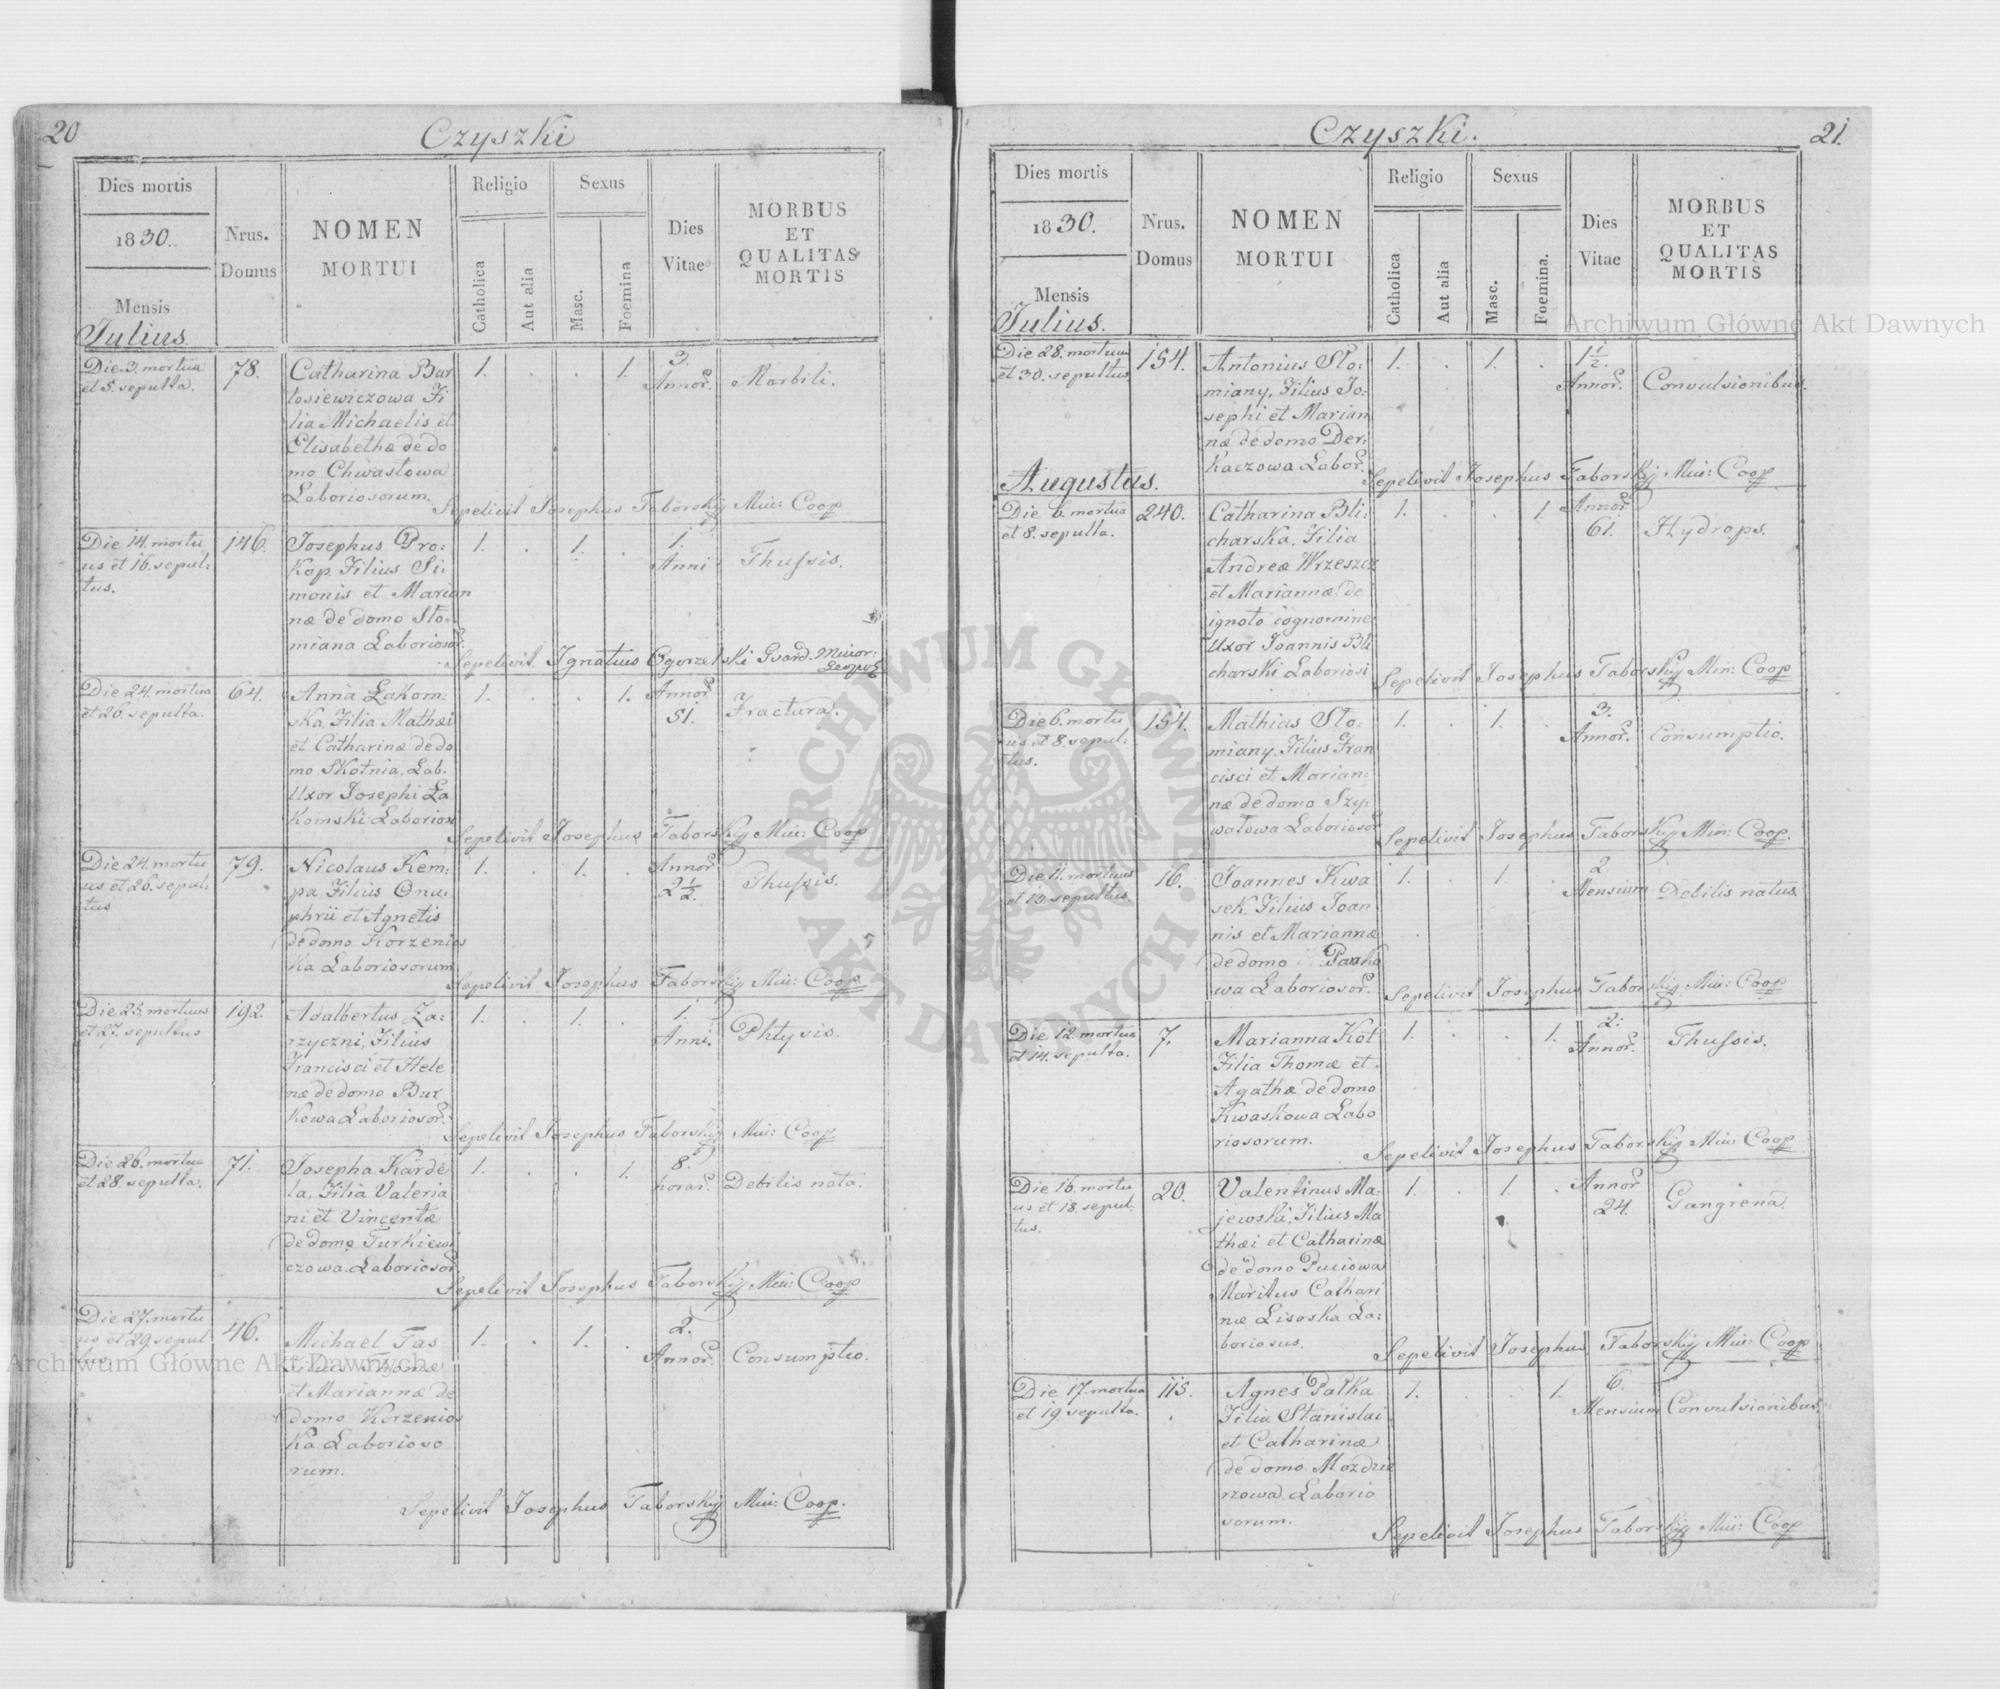 20
Czyszki
Dies mortis
1830.
Mensis
Julius
Nrus.
Domus
NOMEN
MORTUI
Religio
Catholica
Aut alia
Sexus
Masc.
Foemina
Dies
Vitae
MORBUS
ET
QUALITAS
MORTIS
Die 3. mortua
et 5. sepulta.
78.
Catharina Bar
tosiewiczowa Fi
lia Michaelis et
Elisabethæ de do
mo Chwastowa
Laboriosorum.
1. . . 1.
3.
Annor.
Morbili.
Sepelivit Josephus Taborskij Min: Coop
Die 14. mortu
us et 16. sepul:
tus.
146.
Josephus Pro:
kop Filius Si:
monis et Marian
næ de domo Sło:
miana Laboriosor.
1. . 1. .
1.
Anni
Thussis.
Sepelivit Ignatius Ogorzelski Guard. Minor:
Leopol
Die 24. mortua
et 26. sepulta.
64.
Anna Łakom:
ska, Filia Mathæi
et Catharinæ de do
mo Skotnia, Lab.
Uxor Josephi Ła
komski Laboriosi
1. . . 1.
Annor.
51.
Fractura.
Sepelivit Josephus Taborskij Min: Coop
Die 24. mortu
us et 26. sepul:
tus
79.
Nicolaus Kem:
pa Filius Onu:
phrii et Agnetis
de domo Korzenios
ka Laboriosorum
1. . 1. .
Annor.
2½.
Thussis.
Sepelivit Josephus Taborskij Min: Coop
Die 25. mortuus
et 27. sepultus
192.
Adalbertus Za:
rzyczni, Filius
Francisci et Hele
næ de domo Bur
kowa Laboriosor.
1. . 1. .
1.
Anni.
Phtysis.
Sepelivit Josephus Taborskij Min: Coop
Die 26. mortua
et 28. sepulta.
71.
Josepha Karde
la, Filia Valeria
ni et Vincentæ
de domo Turkiewi
czowa Laboriosor.
1. . . 1.
8.
horar.
Debilis nata.
Sepelivit Josephus Taborskij Min: Coop
Die 27. mortu
us et 29. sepul
tus.
46.
Michael Tas
Filius Thomæ
et Mariannæ de
domo Korzenios
ka Laborioso
rum.
1. . 1. .
2.
Annor.
Consumptio.
Sepelivit Josephus Taborskij Min: Coop.
Czyszki.
21.
Dies mortis
1830.
Mensis
Julius.
Nrus.
Domus
NOMEN
MORTUI
Religio
Catholica
Aut alia
Sexus
Masc.
Foemina.
Dies
Vitae
MORBUS
ET
QUALITAS
MORTIS
Die 28. mortuus
et 30. sepultus
154.
Antonius Sło:
miany, Filius Jo:
sephi et Marian
næ de domo Der:
kaczowa Labor.
1. . 1. .
1½.
Annor.
Convulsionibus.
Sepelivit Josephus Taborskij Min: Coop
Augustus.
Die 6. mortua
et 8. sepulta.
240.
Catharina Bli:
charska, Filia
Andreæ Wrzeszcz
et Mariannæ de
ignoto cognomine
Uxor Joannis Bli
charski Laboriosi
1. . . 1
Annor.
61.
Hydrops.
Sepelivit Josephus Taborskij Min: Coop
Die 6. mortu
us et 8. sepul:
tus.
154.
Mathias Sło:
miany, Filius Fran
cisci et Marian:
næ de domo Szy:
wałowa Laboriosor.
1. . 1. .
3.
Annor.
Consumptio.
Sepelivit Josephus Taborskij Min: Coop.
Die 11. mortuus
et 13. sepultus.
16.
Joannes Kwa
sek, Filius Joan
nis et Mariannæ
de domo Pasko
wa Laboriosor.
1. . 1 .
2.
Mensium
Debilis natus
Sepelivit Josephus Taborskij Min: Coop
Die 12. mortua
et 14. sepulta.
7.
Marianna Kot
Filia Thomæ et
Agathæ de domo
Kwaskowa Labo
riosorum.
1. . . 1.
2.
Annor.
Thussis.
Sepelivit Josephus Taborskij Min: Coop
Die 16. mortu
us et 18. sepul
tus.
20.
Valentinus Ma:
jewski, Filius Ma
thæi et Catharinæ
de domo Puciowa
Maritus Cathari
næ Lisoska La:
boriosus.
1. . 1. .
Annor
24.
Gangrena.
Sepelivit Josephus Taborskij Min: Coop
Die 17. mortua
et 19. sepulta.
115.
Agnes Pałka
Filia Stanislai
et Catharinæ
de domo Mozdzie
rzowa Laborio
sorum.
1. . . 1.
6.
Mensium
Convulsionibus.
Sepelivit Josephus Taborskij Min: Coop
Archiwum Główne Akt Dawnych
Archiwum Główne Akt Dawnych
ARCHIWUM GŁÓWNE AKT DAWNYCH